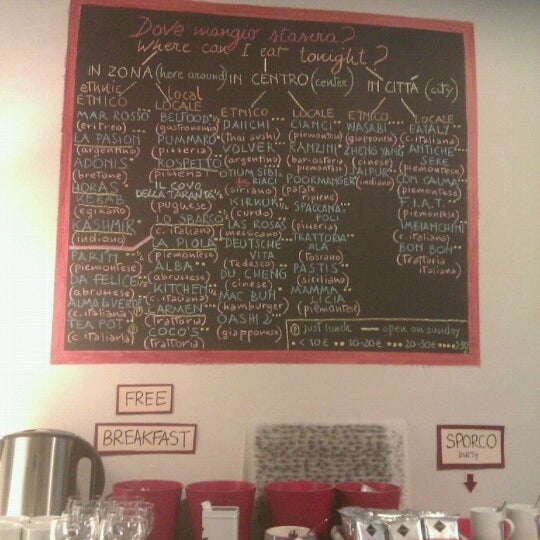 Dove mangio stasera?
Where can I eat tonight?
IN ZONA (here around)
ethnic
ETNICO
MAR ROSSO
(eritreo)
LA PASION
(argentino)
ADONIS
(bretone)
HORAS
KEBAB
(egiziano)
KASHMIR
(indiano)
PARI'N
(piemontese)
DA FELICE
(abruzzese)
ALMA & VERDE
(c. italiana)
TEA POT
(c. italiana)
local
LOCALE
BELFOOD
(gastronomia)
PUMMARO
(pizzeria)
ROSPETTO
(pizzeria)
IL COVO
DELLA TARANTA
(pugliese)
LO SBARCO
(c. italiana)
LA PIOLA
(piemontese)
ALBA
(abruzzese)
KITCHEN
(c. italiana)
CARMEN
(trattoria)
COCO'S
(trattoria)
IN CENTRO (center)
ETNICO
DAIICHI
(thai sushi)
VOLVER
(argentino)
OTIUM SIBI-
RIACI
(siriano)
KIRKUK
(curdo)
LAS ROSAS
(messicano)
DEUTSCHE
VITA
(tedesco)
DU CHENG
(cinese)
MAC BUN
(hamburger)
OASHI 2
(giapponese)
LOCALE
CIANCI
(piemontese)
RANZINI
(bar-osteria
piemontese)
POORMANGER
(patate
ripiene)
SPACCANA-
POLI
(pizzeria)
TRATTORIA
ALA
(toscano)
PASTIS
(siciliano)
MAMMA
LICIA
(piemontese)
IN CITTÁ (city)
ETNICO
WASABI
(giapponese)
ZHENG YANG
(cinese)
JAIPUR
(indiano)
LOCALE
EATALY
(c. italiana)
ANTICHE
SERE
(piemontese)
CON CALMA
(piemontese)
F.I.A.T.
(piemontese)
IMBIANCHINI
(c. italiana)
BON BON
(trattoria
italiana)
P just lunch — open on sunday
• < 10 € •• 10-20 € ••• 20-30 € •••• >30
FREE
BREAKFAST
SPORCO
DIRTY